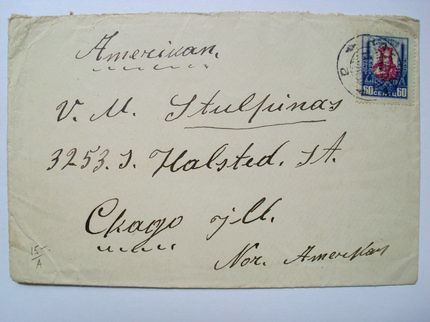 Amerikan.
V. M. Stulpinas
3253. S. Halsted. St.
Ckago jll.
Nor. Amerikan
60 CENTŲ 60
15/A